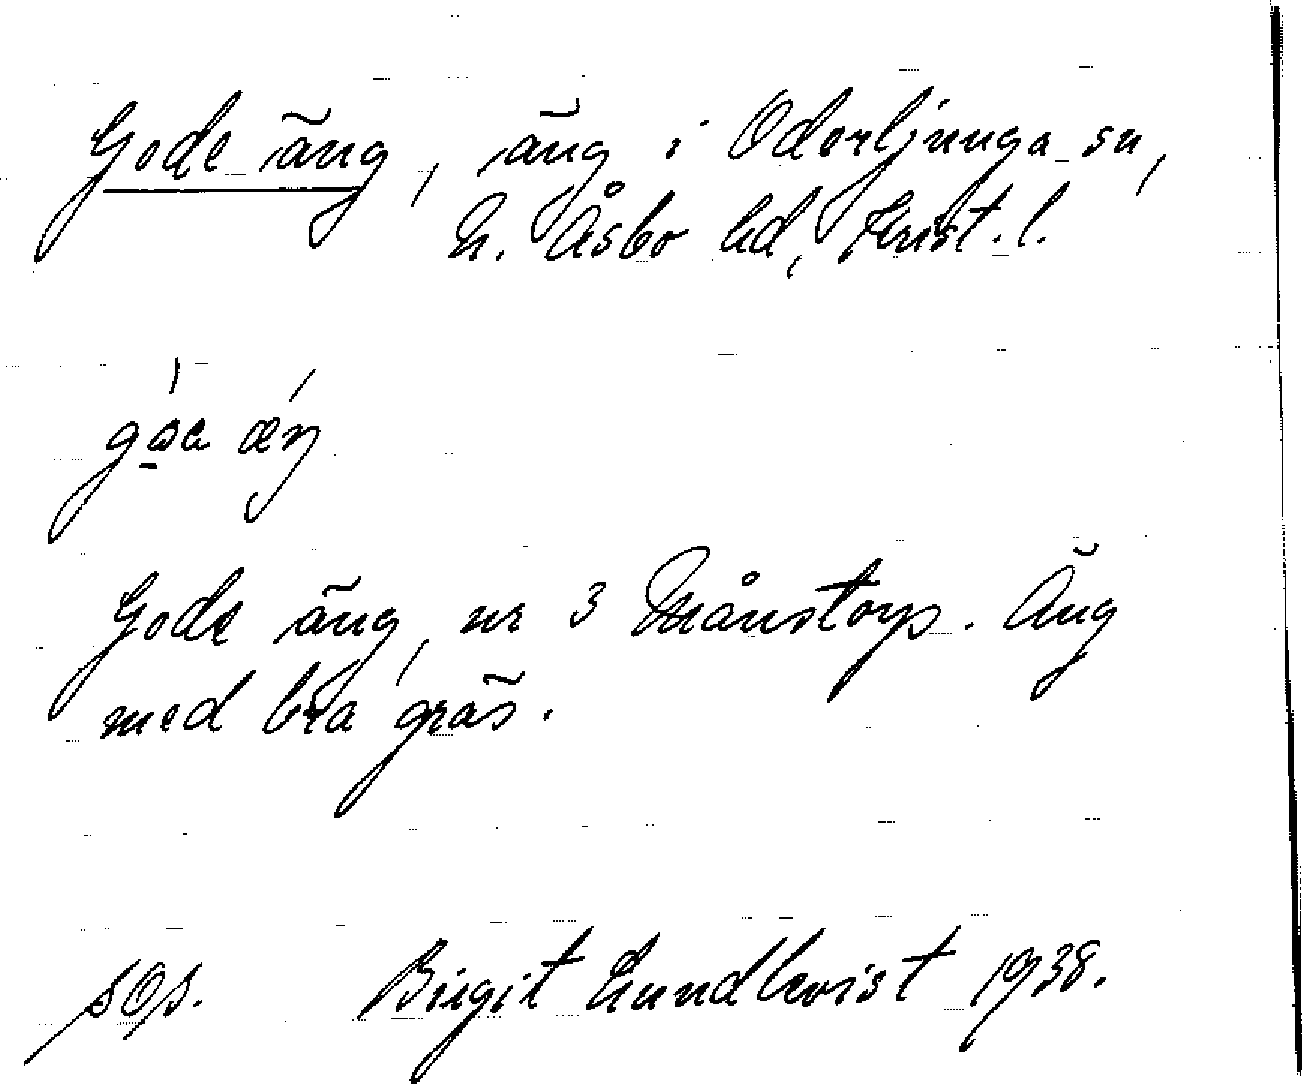 Gode äng, äng i Oderljunga sn,
N. Åsbo hd, Krist. l.
Gode äng, nr 3 Månstorp. Äng
med bra gräs.
Birgit Lundkvist 1938.